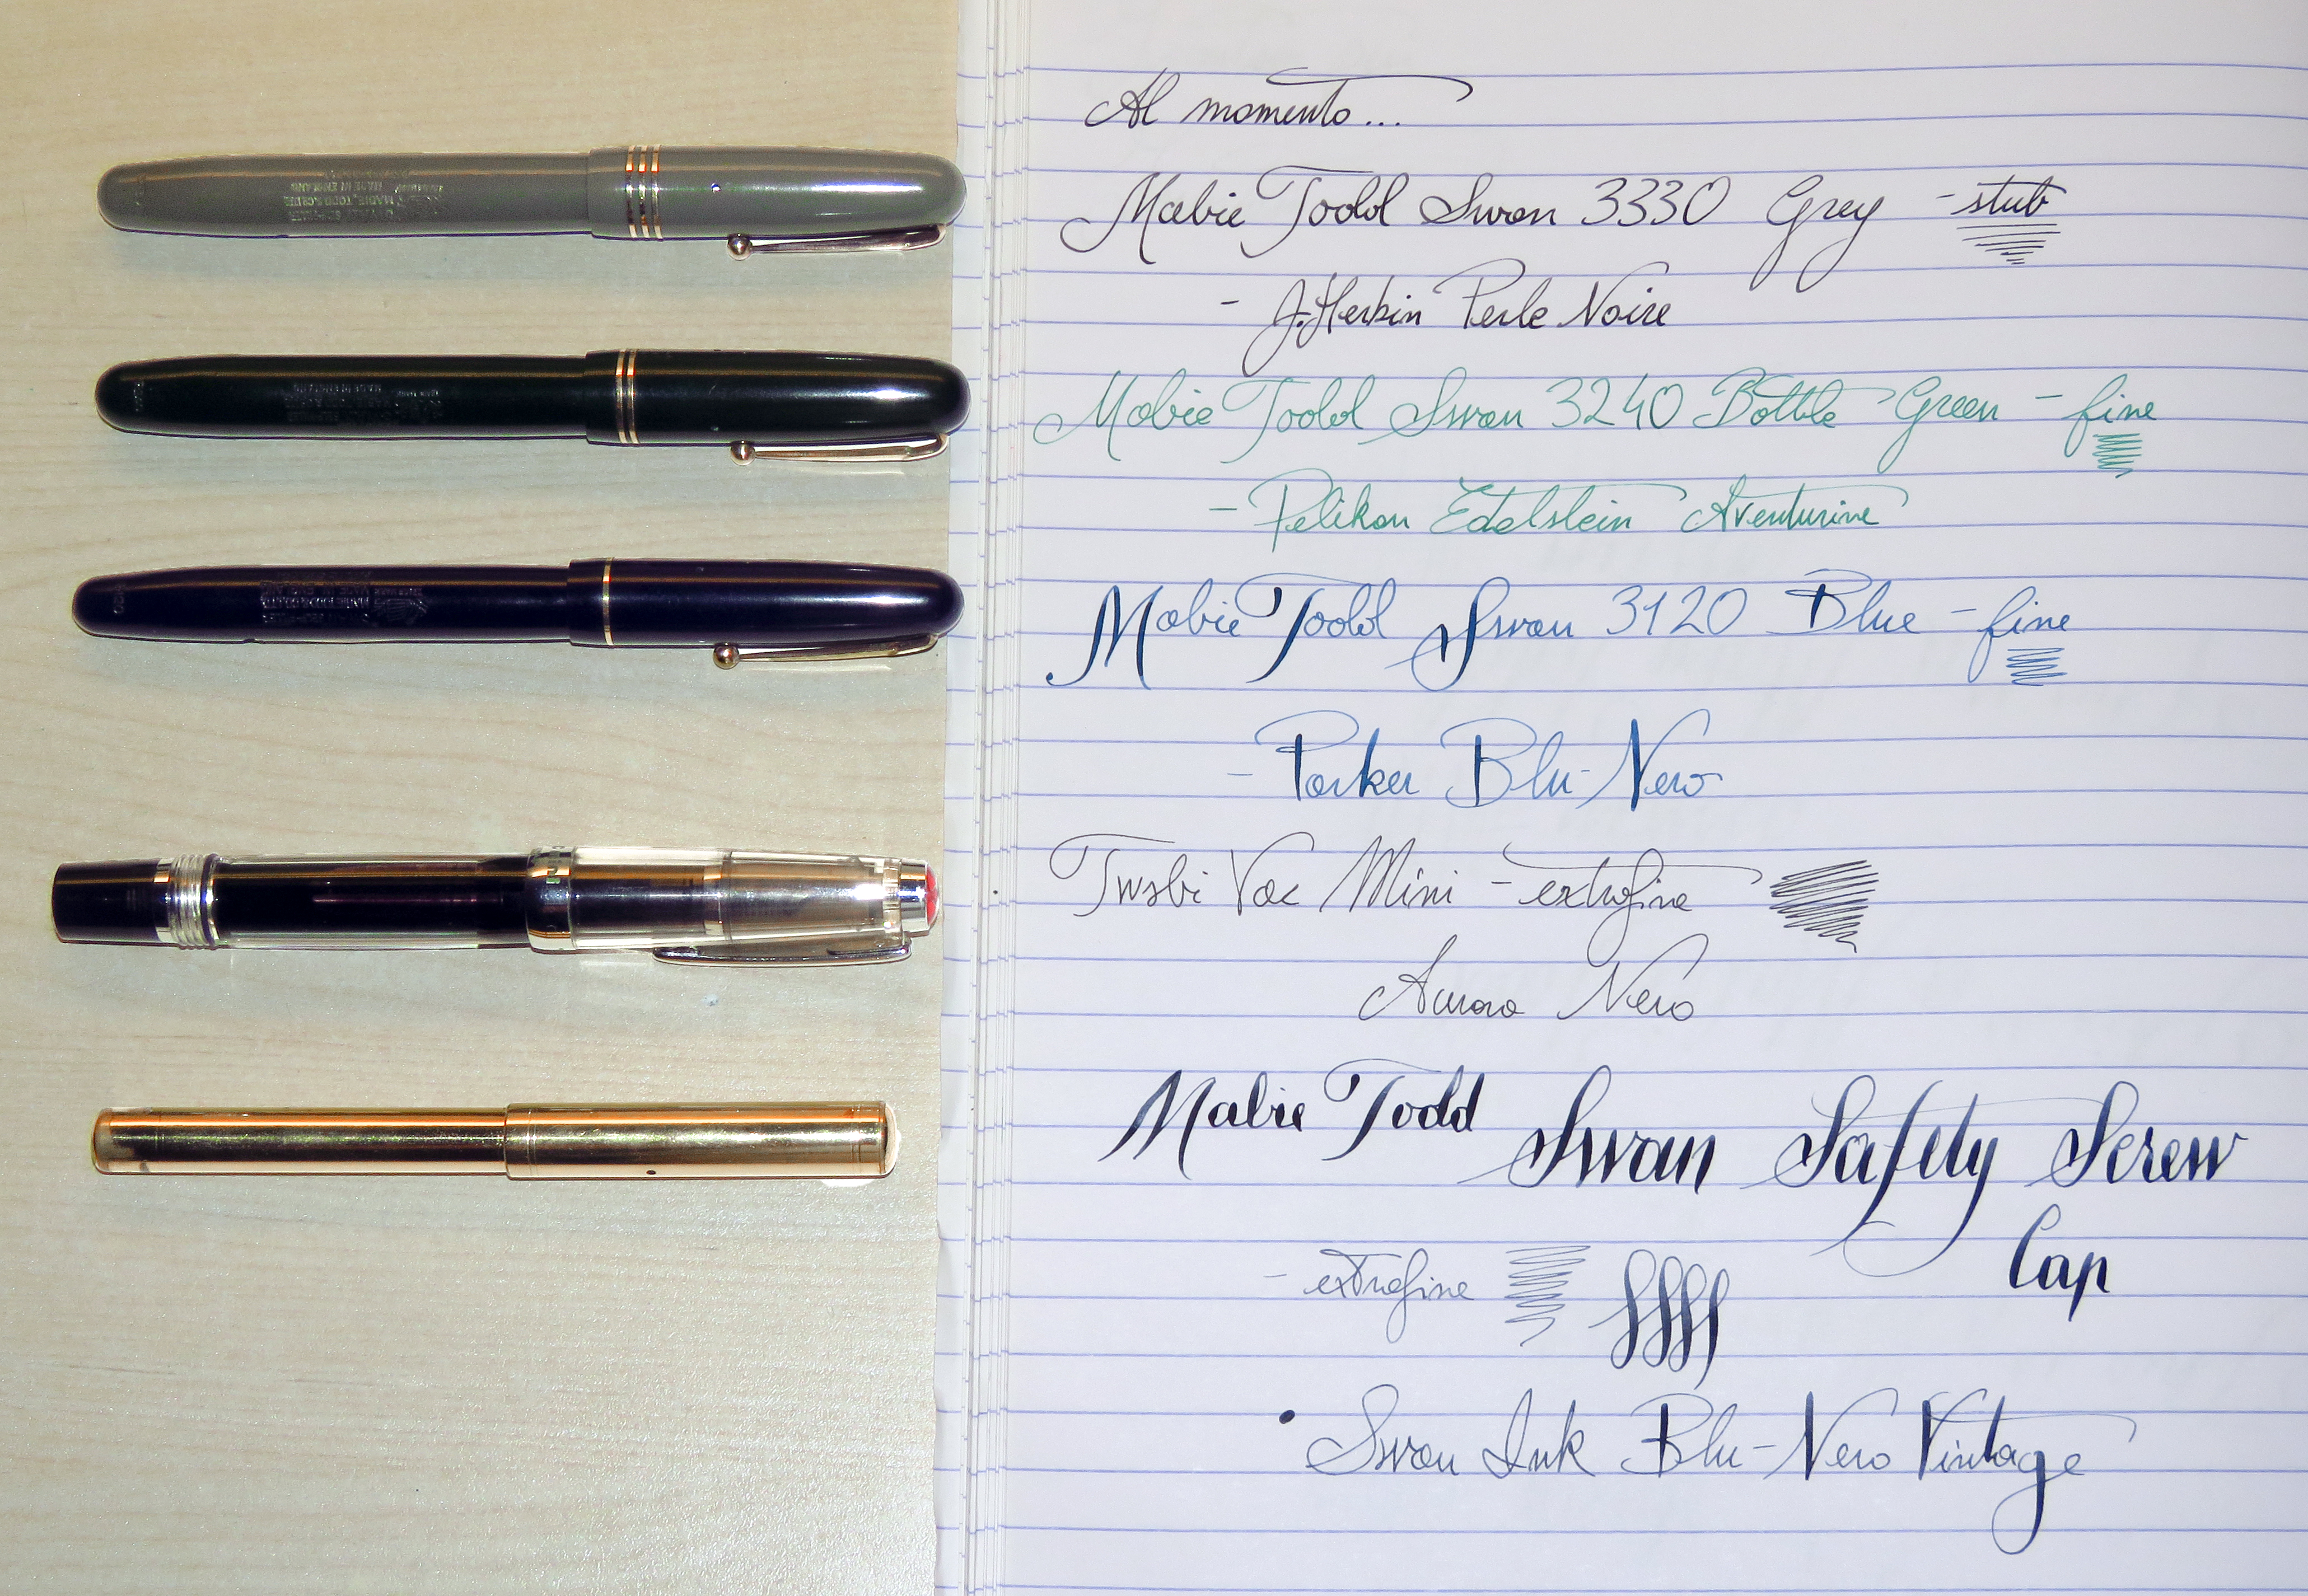 Al momento...
Mabie Todd Swan 3330 Grey - stub
- J. Herbin Perle Noire
Mabie Todd Swan 3240 Bottle Green - fine
- Pelikan Edelstein Aventurine
Mabie Todd Swan 3120 Blue - fine
- Parker Blu-Nero
Twsbi Vac Mini - extrafine
Aurora Nero
Mabie Todd Swan Safety Screw
Cap
- extrafine
• Swan Ink Blu-Nero Vintage
MADE IN ENGLAND
MABIE, TODD & CO LTD